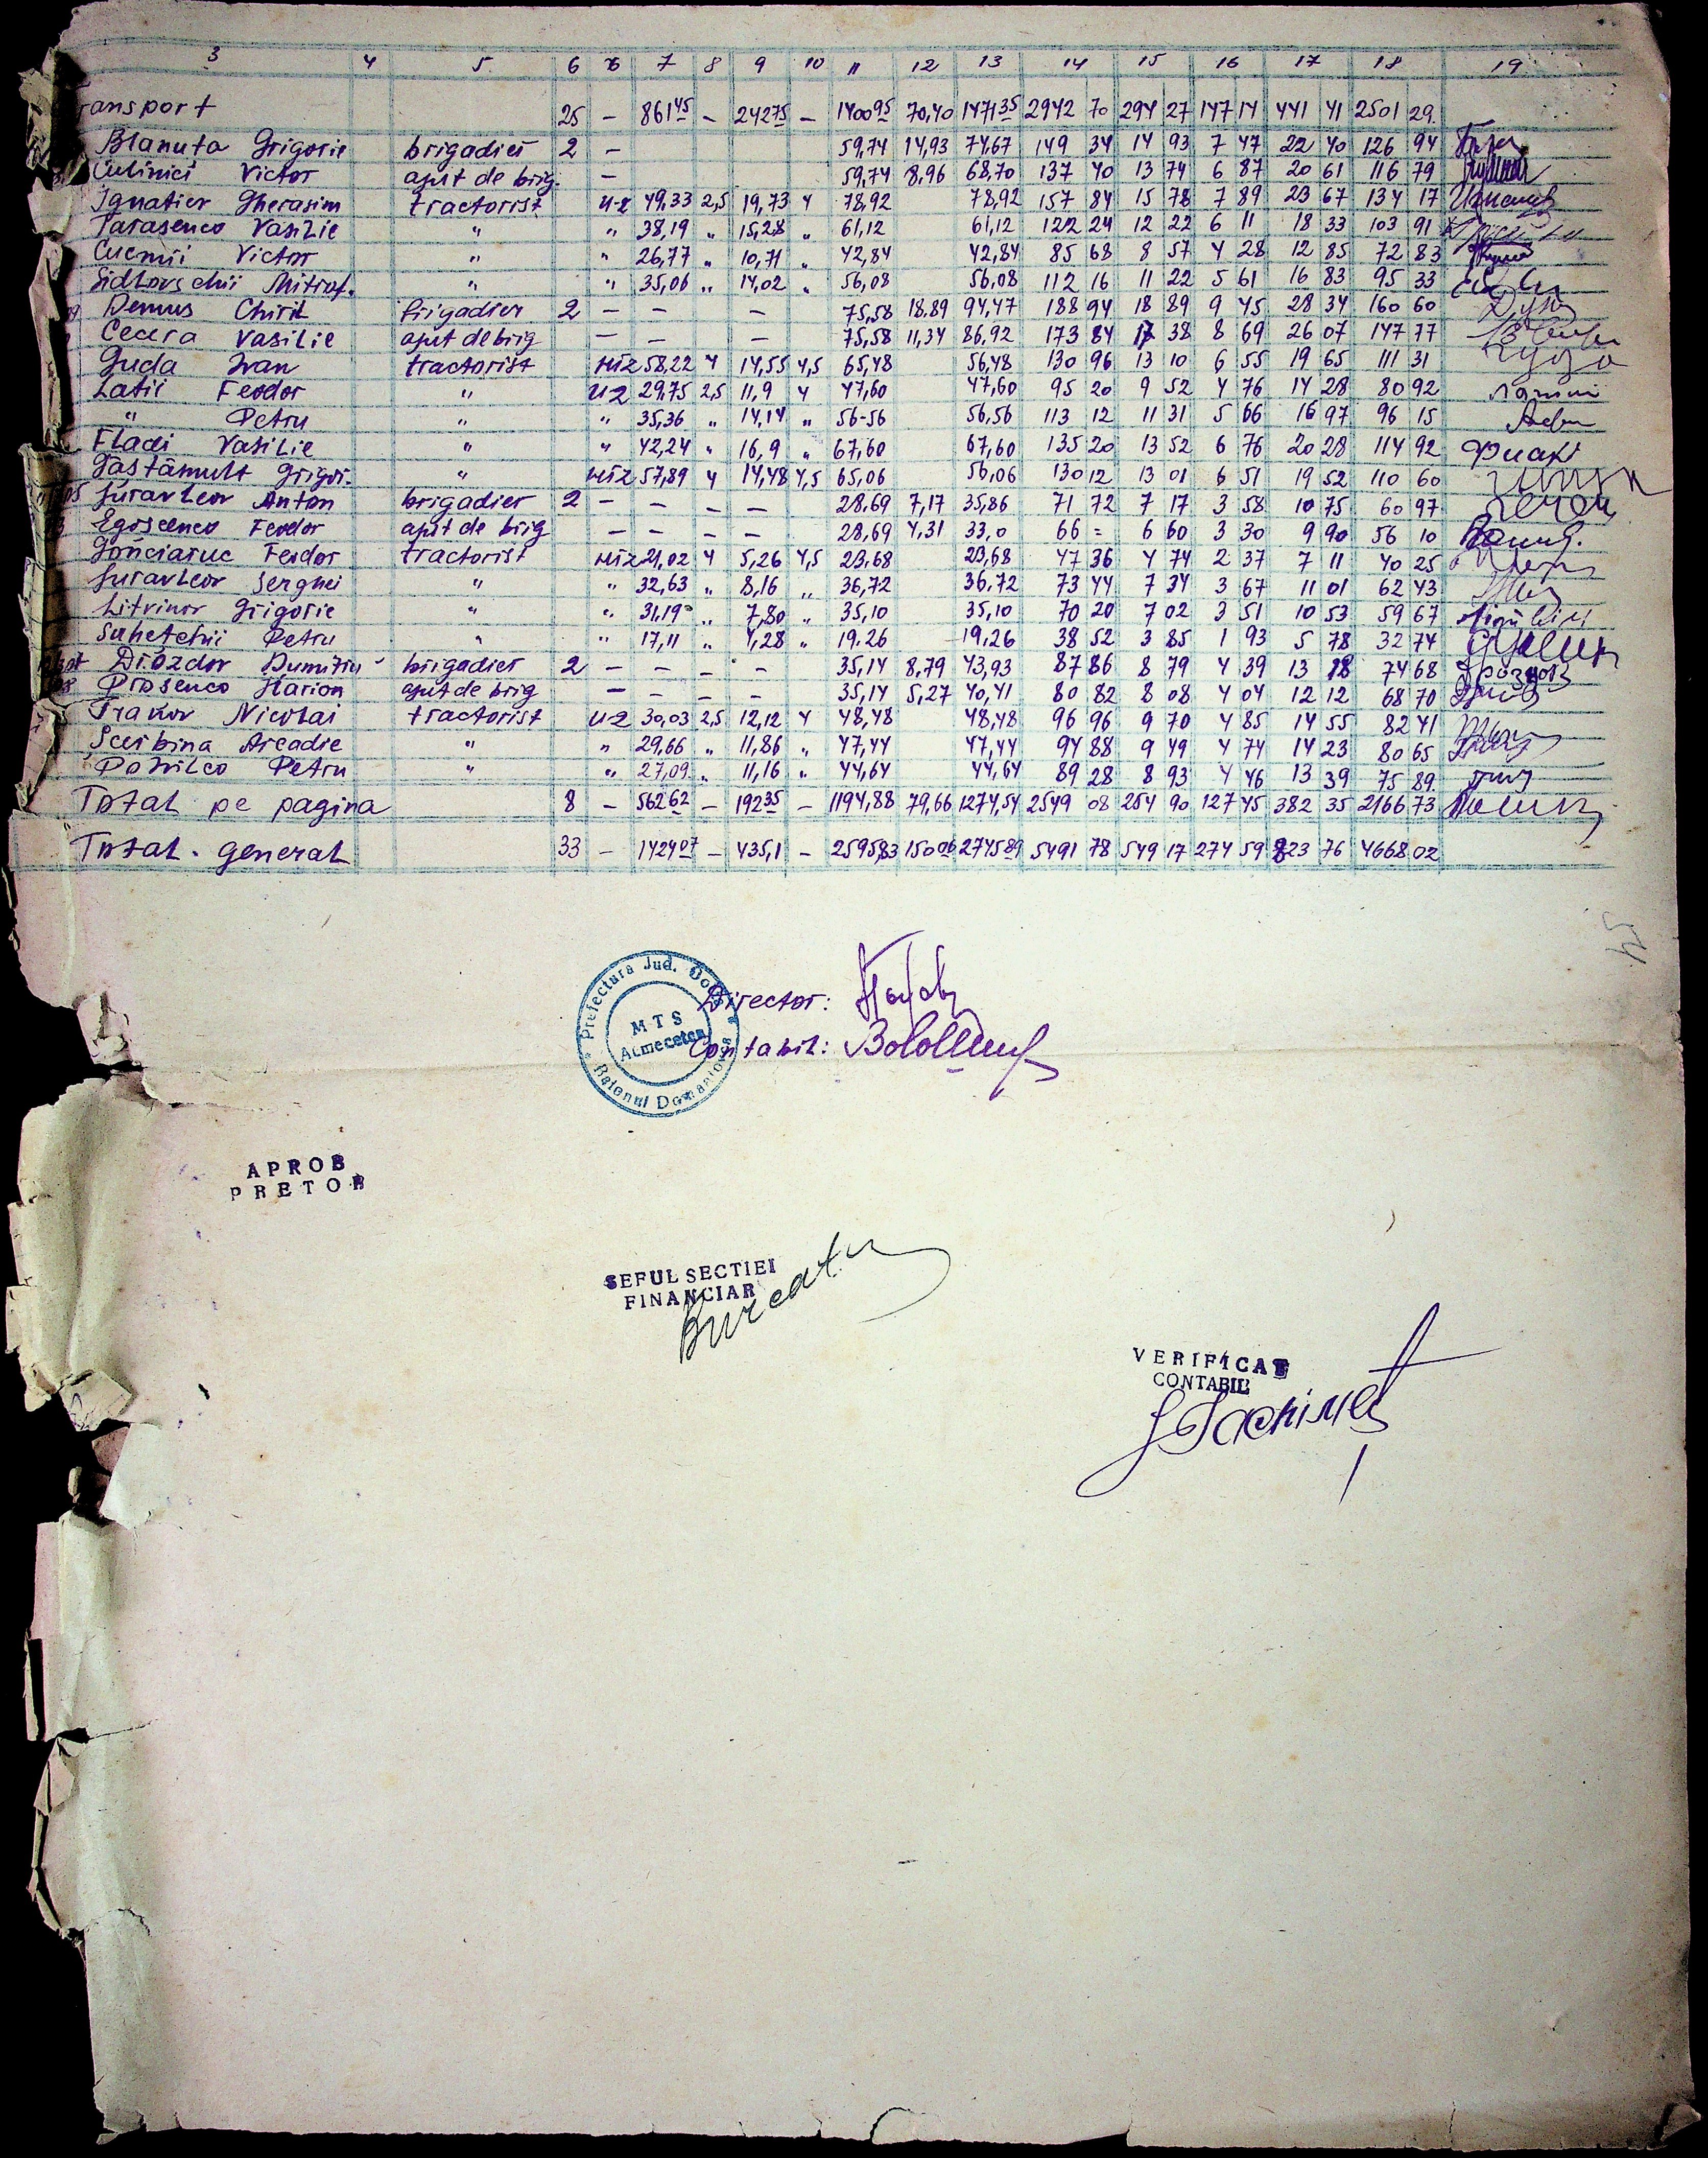 3 4 5 6 6 7 8 9 10 11 12 13 14 15 16 17 18 19
ransport 25 – 861 45 – 242 75 – 1400 95 70,40 1471 35 2942 70 294 27 147 14 441 41 2501 29
Blanuta Grigorie brigadier 2 – 59,74 14,93 74,67 149 34 14 93 7 47 22 40 126 94
Culinici Victor ajut de brig. – 59,74 8,96 68,70 137 40 13 74 6 87 20 61 116 79
Ignatier Gherasim tractorist u-2 49,33 2,5 19,73 4 78,92 78,92 157 84 15 78 7 89 23 67 134 17
Tarasenco Vasilie " " 38,19 " 15,28 " 61,12 61,12 122 24 12 22 6 11 18 33 103 91
Cucmii Victor " " 26,77 " 10,71 " 42,84 42,84 85 68 8 57 4 28 12 85 72 83
Sidlovschii Mitrof. " " 35,06 " 14,02 " 56,08 56,08 112 16 11 22 5 61 16 83 95 33
Demus Chiril brigadier 2 – – – 75,58 18,89 94,47 188 94 18 89 9 45 28 34 160 60
Cecera Vasilie ajut de brig – – – 75,58 11,34 86,92 173 84 17 38 8 69 26 07 147 77
Guda Ivan tractorist 58,22 4 14,55 4,5 65,48 56,48 130 96 13 10 6 55 19 65 111 31
Latii Feodor " u2 29,75 2,5 11,9 4 47,60 47,60 95 20 9 52 4 76 14 28 80 92
" Petru " " 35,36 " 14,14 " 56-56 56,56 113 12 11 31 5 66 16 97 96 15
Fladi Vasilie " " 42,24 " 16,9 " 67,60 67,60 135 20 13 52 6 76 20 28 114 92
Gastamult Grigori. " 57,89 4 14,48 4,5 65,06 56,06 130 12 13 01 6 51 19 52 110 60
Juravleov Anton brigadier 2 – – – – 28,69 7,17 35,86 71 72 7 17 3 58 10 75 60 97
Egoscenco Feodor ajut de brig – – – – 28,69 4,31 33,0 66 = 6 60 3 30 9 90 56 10
Gonciaruc Feodor tractorist 21,02 4 5,26 4,5 23,68 23,68 47 36 4 74 2 37 7 11 40 25
Juravleov Serghei " " 32,63 " 8,16 " 36,72 36,72 73 44 7 34 3 67 11 01 62 43
Litvinov Grigorie " " 31,19 " 7,80 " 35,10 35,10 70 20 7 02 3 51 10 53 59 67
Suhetchii Petru " " 17,11 " 4,28 " 19.26 19,26 38 52 3 85 1 93 5 78 32 74
Drozdov Dumitru brigadier 2 – – – – 35,14 8,79 43,93 87 86 8 79 4 39 13 18 74 68
Prosenco Ilarion ajut de brig – – – – 35,14 5,27 40,41 80 82 8 08 4 04 12 12 68 70
Tranov Nicolai tractorist u-2 30,03 2,5 12,12 4 48,48 48,48 96 96 9 70 4 85 14 55 82 41
Scribina Arcadie " " 29,66 " 11,86 " 47,44 47,44 94 88 9 49 4 74 14 23 80 65
Donilco Petru " " 27,09 " 11,16 " 44,64 44,64 89 28 8 93 4 46 13 39 75 89
Total pe pagina 8 – 562 62 – 192 35 – 1194,88 79,66 1274,54 2549 08 254 90 127 45 382 35 2166 73
Total. general 33 – 1424 07 – 435,1 – 2595 83 150 06 2745 89 5491 78 549 17 274 59 823 76 4668 02
45
Prefectura Jud.
MTS
Acmecetca
Director:
Contabil:
APROB
PRETOR
SEFUL SECTIEI
FINANCIAR
VERIFICAT
CONTABIL